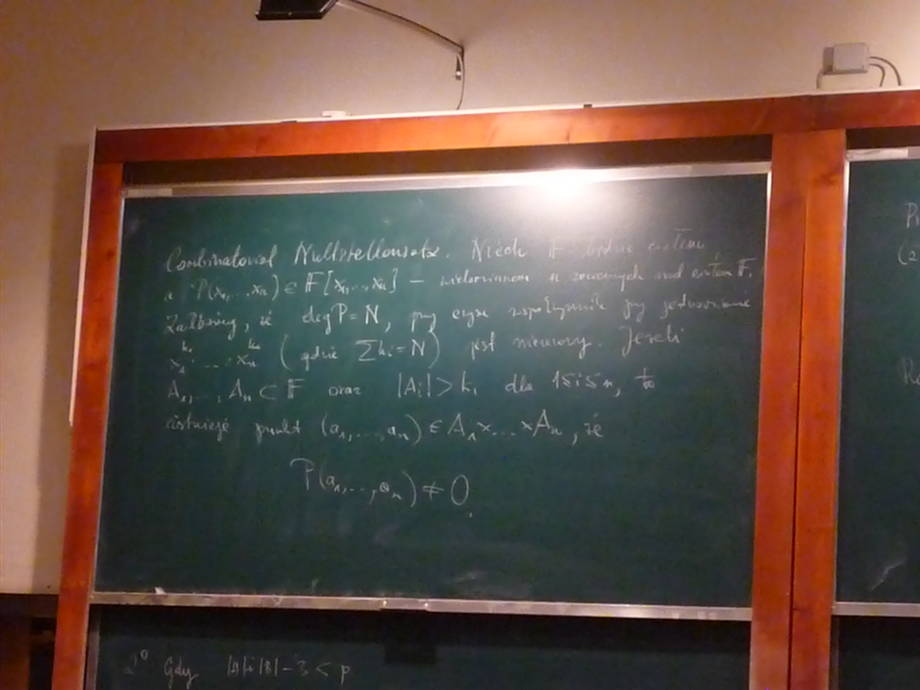 Combinatorial Nullstellensatz. Niech F będzie ciałem,
a P(x₁,...,xₙ) ∈ F[x₁,...,xₙ] – wielomianem n zmiennych nad ciałem F.
Załóżmy, że deg P = N, przy czym współczynnik przy jednomianie
x₁^k₁ ... xₙ^kₙ (gdzie Σkᵢ = N) jest niezerowy. Jeżeli
A₁,...,Aₙ ⊂ F oraz |Aᵢ| > kᵢ dla 1≤i≤n, to
istnieje punkt (a₁,...,aₙ) ∈ A₁×...×Aₙ, że
P(a₁,...,aₙ) ≠ 0.
2⁰ Gdy |A|+|B|-3 < p
P
(2
R